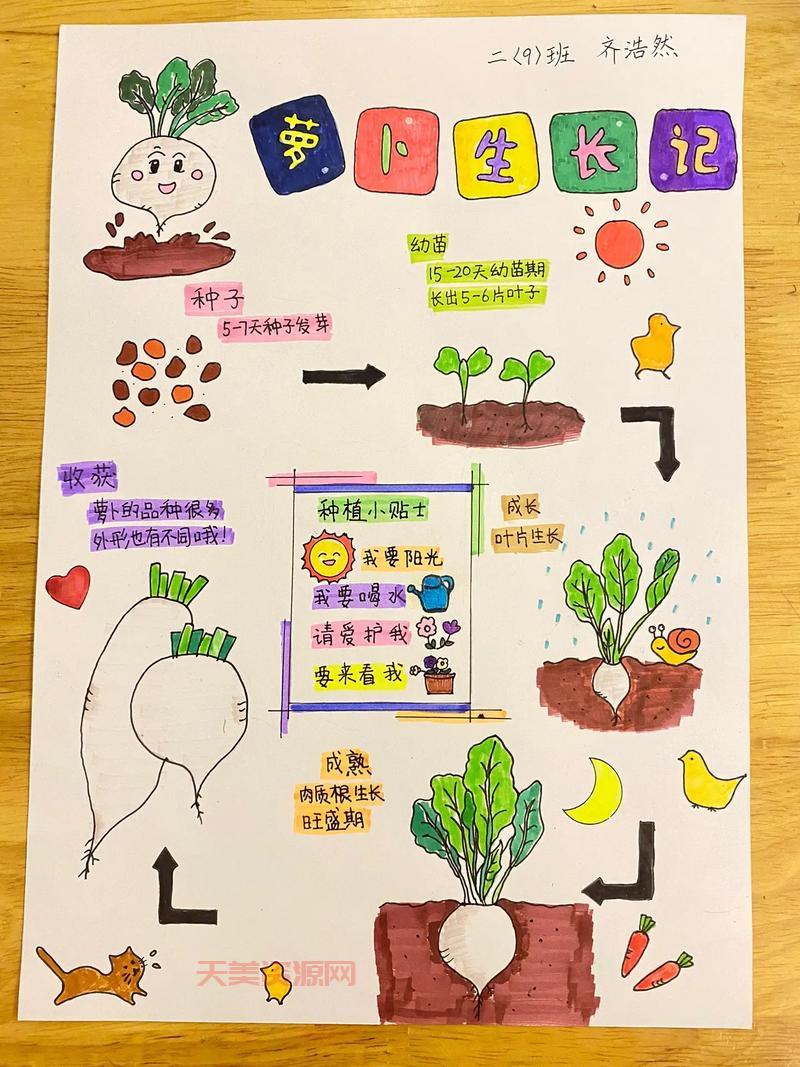 二(9)班 齐浩然
萝卜生长记
种子
5-7天种子发芽
幼苗
15-20天幼苗期
长出5-6片叶子
收获
萝卜的品种很多
外形也有不同哦!
种植小贴士
我要阳光
我要喝水
请爱护我
要来看我
成长
叶片生长
成熟
肉质根生长
旺盛期
天美资源网